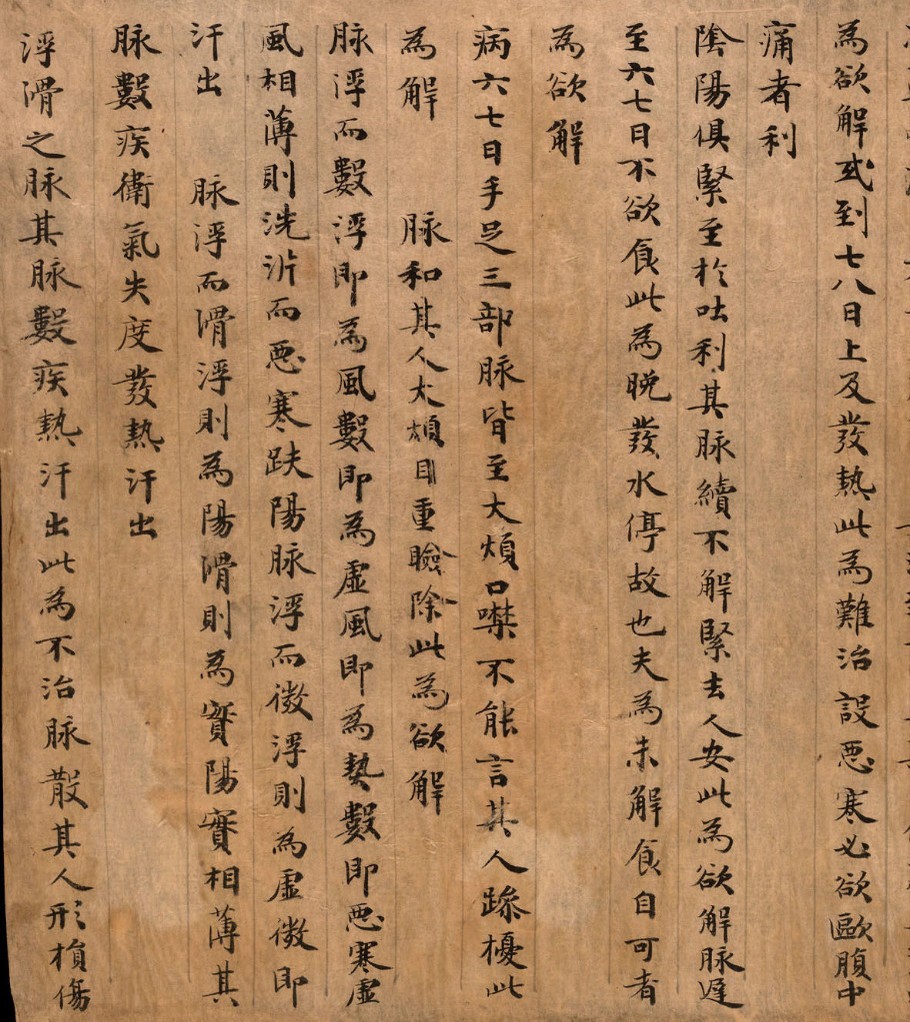 為欲解或到七八日上及發熱此為難治設惡寒必欲歐腹中
痛者利
陰陽俱緊至於吐利其脉續不解緊去人安此為欲解脉遲
至六七日不欲食此為晚發水停故也夫為未解食自可者
為欲解
病六七日手足三部脉皆至大煩口噤不能言其人躁擾此
為解　脉和其人大煩目重瞼除此為欲解
脉浮而數浮即為風數即為虛風即為熱數即惡寒虛
風相薄則洗淅而惡寒趺陽脉浮而微浮則為虛微即
汗出　脉浮而滑浮則為陽滑則為實陽實相薄其
脉數疾衛氣失度發熱汗出
浮滑之脉其脉數疾熱汗出此為不治脉散其人形損傷